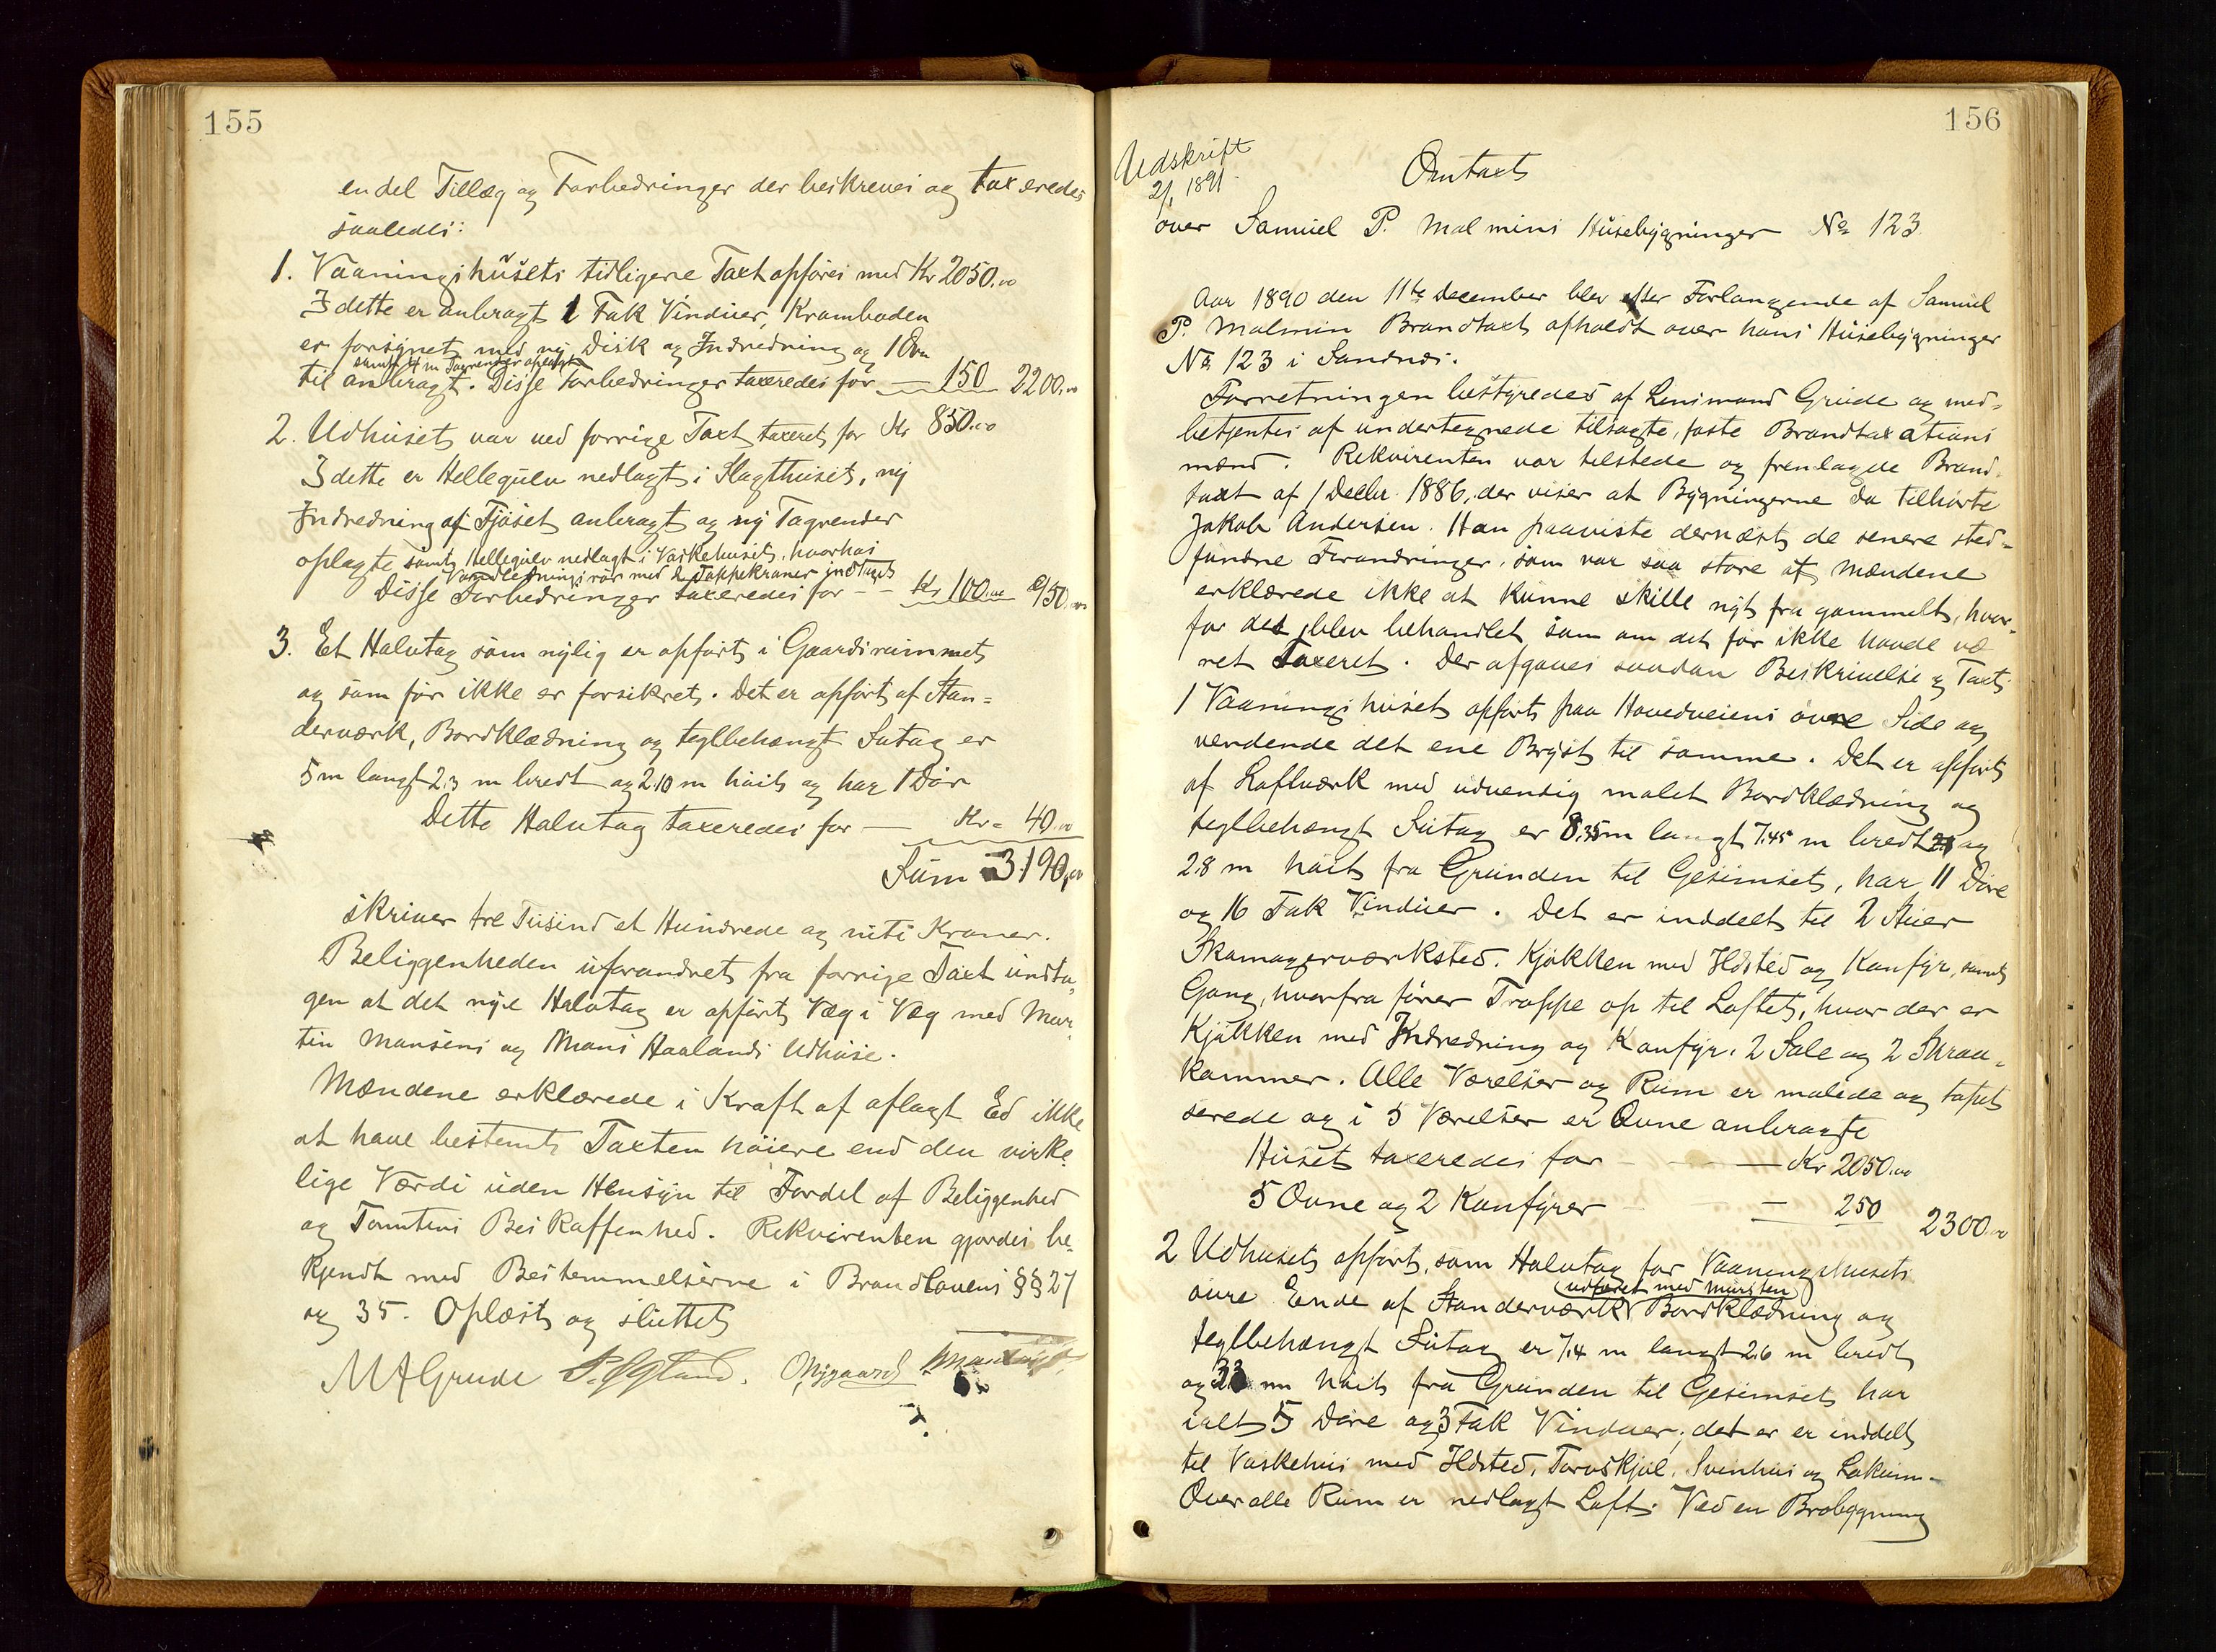 155
en del Tillæg og Forbedringer der beskreves og taxeredes
saaledes:
1. Vaaningshusets tidligere Taxt opføres med Kr 2050.00
I dette er anbragt 1 Fak Vinduer, Kramboden
er forsynet med ny Disk og Indredning og 1 Ovn
samt 4 m Tagrender oplagte
til anbragt. Disse Forbedringer taxeredes for — 150 2200.00
2. Udhuset var ved forrige Taxt taxeret for Kr 850.00
I dette er Hellegulv nedlagt i Slagthuset, ny
Indredning af Fjøset anbragt og ny Tagrender
oplagte samt Hellegulv nedlagt i Vaskehuset, hvorhos
Vandledningsrør med 2 Tappekraner indtaget
Disse Forbedringer taxeredes for - - Kr 100.00 950.00
3. Et Halvtag som nylig er opført i Gaardsrummet
og som før ikke er forsikret. Det er opført af Stan=
derværk, Bordklædning og teglbehængt Sutag er
5 m langt 2.3 m bredt og 2.10 m høit og har 1 Dør
Dette Halvtag taxeredes for — Kr = 40.00
Sum 3190,00
skriver tre Tusind et Hundrede og niti Kroner.
Beliggenheden uforandret fra forrige Taxt undta,
gen at det nye Halvtag er opført Væg i Væg med Mar,
tin Mansens og Mons Haalands Udhuse.
Mændene erklærede i Kraft af aflagt Ed ikke
at have bestemt Taxten høiere end den virke,
lige Værdi uden Hensyn til Fordel af Beliggenhed
og Tomtens Beskaffenhed. Rekvirenten gjordes be,
kjendt med Bestemmelserne i Brandlovens §§ 27
og 35. Oplæst og sluttet
M A Grude O Nygaard
156
Udskrift
2/1 1891.
Omtaxt
over Samuel P. Malmins Husebygninger No 123
Aar 1890 den 11te December blev efter Forlangende af Samuel
P. Malmin Brandtaxt afholdt over hans Husebygninger
No 123 i Sandnæs.
Forretningen bestyredes af Lensmand Grude og med=
betjentes af undertegnede tilsagte, faste Brandtaxations
mænd. Rekvirenten var tilstede og fremlagde Brand,
taxt af 1 Decbr. 1886, der viser at Bygningerne da tilhørte
Jakob Andersen. Han paaviste dernæst de senere sted=
fundne Forandringer, som var saa store at Mændene
erklærede ikke at kunne skille nyt fra gammelt, hvor,
for det blev behandlet som om det før ikke havde væ
ret Taxeret. Der afgaves saadan Beskrivelse og Taxt
1 Vaaningshuset opført paa Hovedveiens øvre Side og
vendende det ene Bryst til samme. Det er opført
af Laftværk med udvendig malet Bordklædning og
teglbehængt Sutag er 8.35 m langt 7.45 m bredt og
2.8 m høit fra Grunden til Gesimset, har 11 Døre
og 16 Fak Vinduer. Det er inddelt til 2 Stuer
Skomagerværksted. Kjøkken med Ildsted og Komfyr, samt
Gang, hvorfra fører Trappe op til Loftet, hvor der er
Kjøkken med Indredning og Komfyr, 2 Sale og 2 Skraa=
kammer. Alle Værelser og Rum er malede og tapet
serede og i 5 Værelser er Ovne anbragte
Huset taxeredes for — Kr 2050.00
5 Ovne og 2 Komfyrer — 250 2300.00
2 Udhuset opført, som Halvtag for Vaaningshusets
øvre Ende af Standerværk (udforet med Mursten) Bordklædning og
teglbehængt Sutag er 7.4 m langt 2.6 m bredt
og m høit fra Grunden til Gesimset har
ialt 5 Døre og 3 Fak Vinduer; det er er inddelt
til Vaskehus med Ildsted, Torvskjul, Svinhus og Lokum.
Over alle Rum er nedlagt Loft. Ved en Brobygning